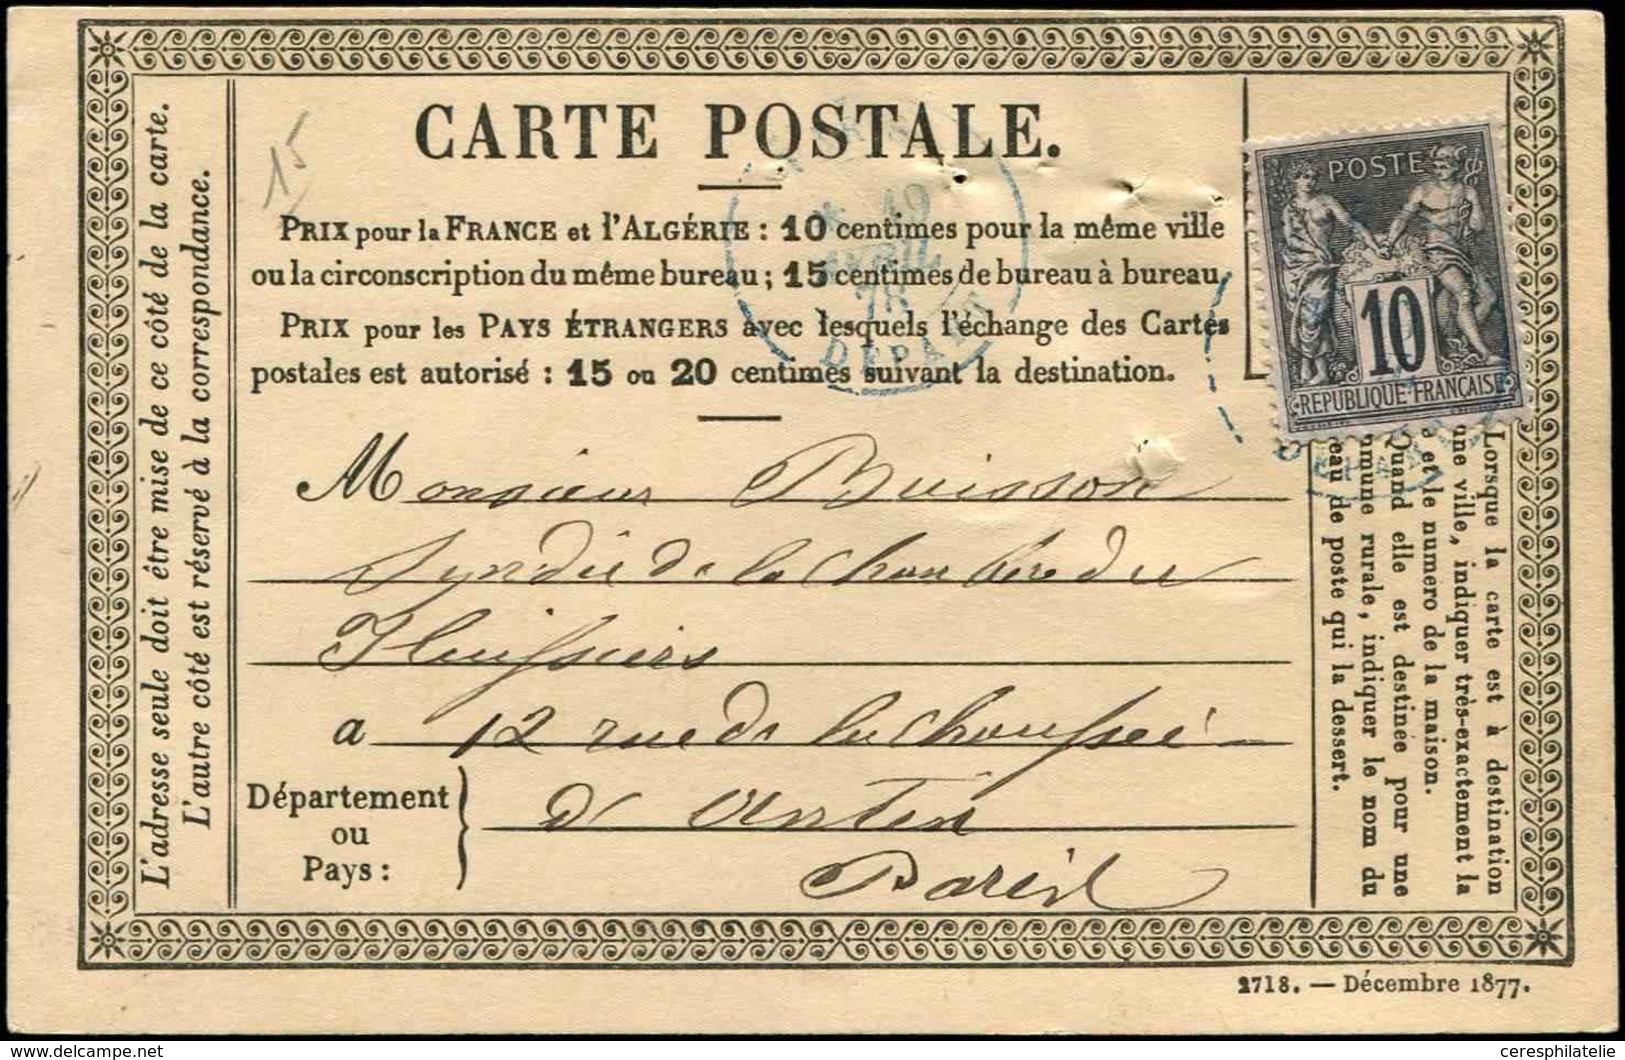 CARTE POSTALE.
15
PRIX pour la FRANCE et l'ALGÉRIE : 10 centimes pour la même ville
ou la circonscription du même bureau ; 15 centimes de bureau à bureau
PRIX pour les PAYS ÉTRANGERS avec lesquels l'échange des Cartes
postales est autorisé : 15 ou 20 centimes suivant la destination.
19
AVRIL
78
DÉPART
POSTE
10
REPUBLIQUE FRANÇAISE
DEPART
Monsieur Buisson
Syndic de la Chambre du
Huissiers
a 12 rue de la Chaussée
Département
ou
Pays :
d'Antin
Paris
L'adresse seule doit être mise de ce côté de la carte.
L'autre côté est réservé à la correspondance.
Lorsque la carte est à destination
une ville, indiquer très-exactement la
e et le numero de la maison.
Quand elle est destinée pour une
mmune rurale, indiquer le nom du
eau de poste qui la dessert.
2718. — Décembre 1877.
delcampe.net
ceresphilatelie